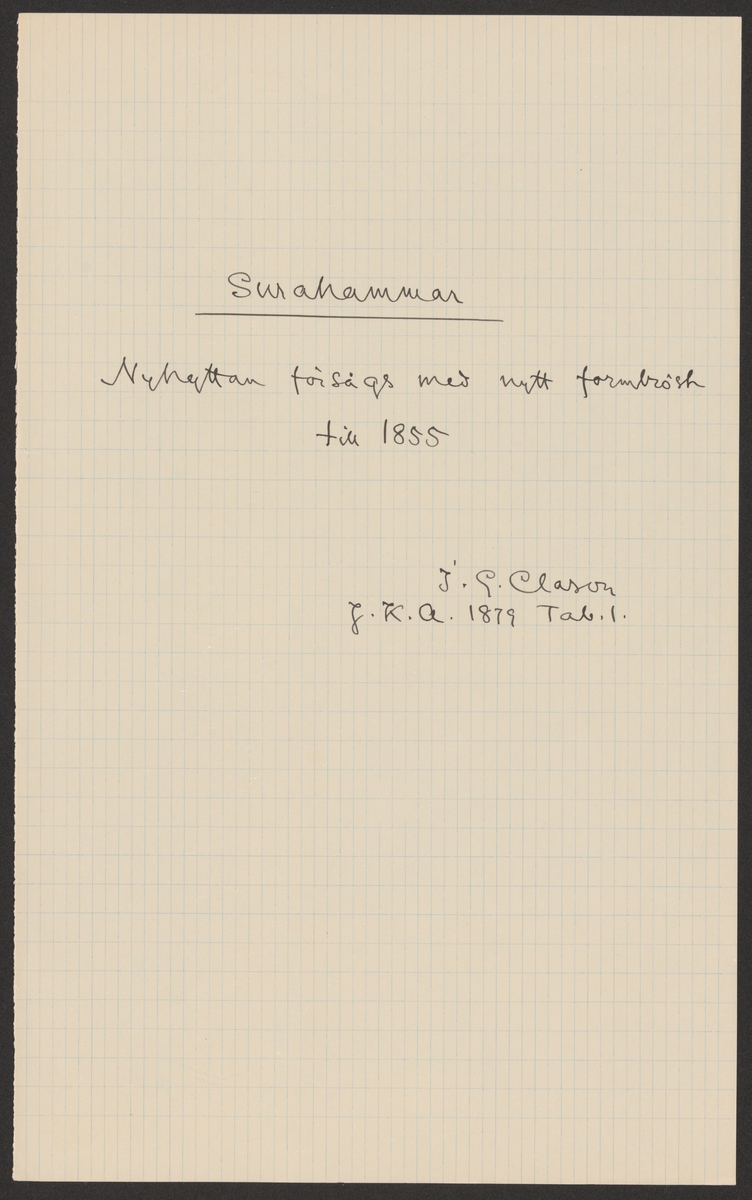 Surahammar
Nyhyttan försågs med nytt formbröst
till 1855
J. G. Clason
J.K.A. 1879 Tab.1.